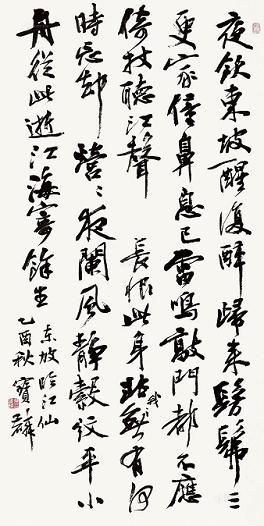 夜飲東坡醒復醉歸來髣髴三
更家僮鼻息已雷鳴敲門都不應
倚杖聽江聲 長恨此身非我有何
時忘却營々夜闌風靜縠紋平小
舟從此逝江海寄餘生
东坡临江仙
乙酉秋寶麟